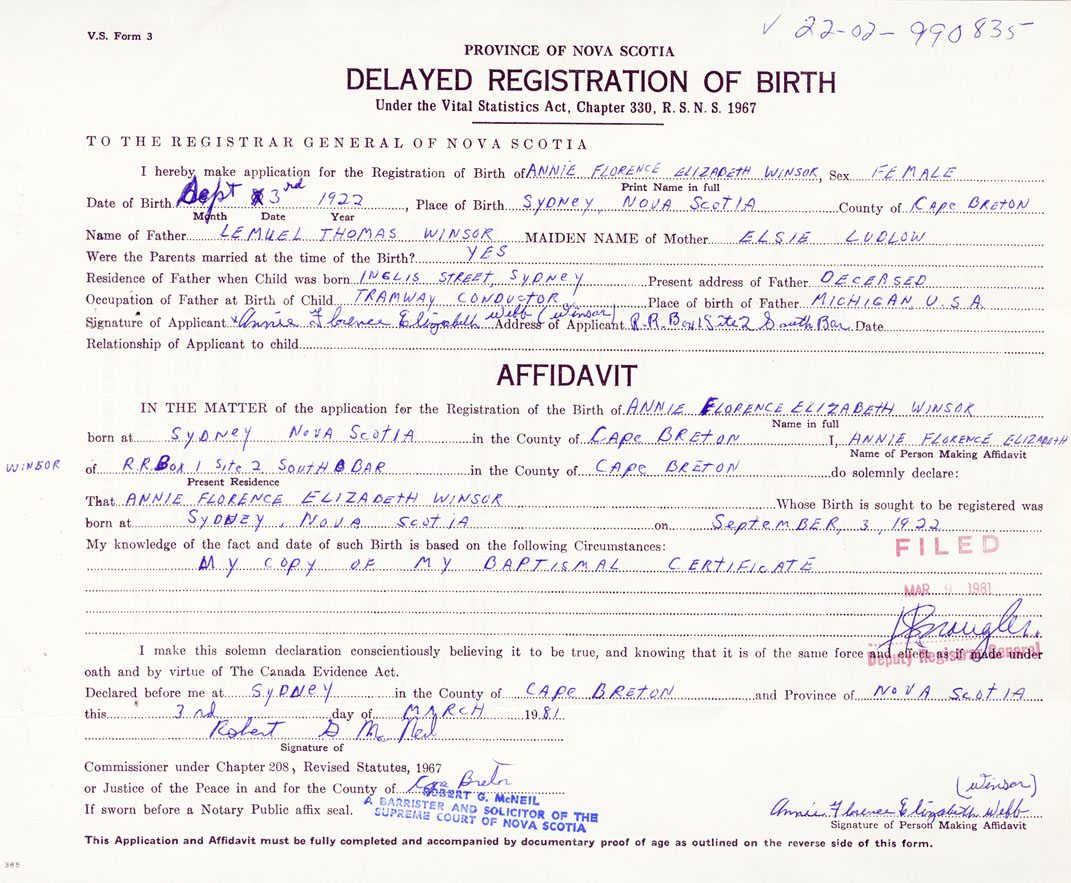 V.S. Form 3
✓ 22-02-990835
PROVINCE OF NOVA SCOTIA
DELAYED REGISTRATION OF BIRTH
Under the Vital Statistics Act, Chapter 330, R.S.N.S. 1967
TO THE REGISTRAR GENERAL OF NOVA SCOTIA
I hereby make application for the Registration of Birth of ANNIE FLORENCE ELIZABETH WINSOR, Sex FEMALE
Print Name in full
Date of Birth Sept 3rd 1922, Place of Birth SYDNEY, NOVA SCOTIA County of CAPE BRETON
Month Date Year
Name of Father LEMUEL THOMAS WINSOR MAIDEN NAME of Mother ELSIE LUDLOW
Were the Parents married at the time of the Birth? YES
Residence of Father when Child was born INGLIS STREET, SYDNEY Present address of Father DECEASED
Occupation of Father at Birth of Child TRAMWAY CONDUCTOR Place of birth of Father MICHIGAN, U.S.A.
Signature of Applicant x Annie Florence Elizabeth Webb (Winsor) Address of Applicant R.R. Box 1 Site 2 South Bar Date
Relationship of Applicant to child
AFFIDAVIT
IN THE MATTER of the application for the Registration of the Birth of ANNIE FLORENCE ELIZABETH WINSOR
Name in full
born at SYDNEY NOVA SCOTIA in the County of CAPE BRETON I, ANNIE FLORENCE ELIZABETH
Name of Person Making Affidavit
WINSOR of R.R. BOX 1 SITE 2 SOUTH BAR in the County of CAPE BRETON do solemnly declare:
Present Residence
That ANNIE FLORENCE ELIZABETH WINSOR Whose Birth is sought to be registered was
born at SYDNEY, NOVA SCOTIA on SEPTEMBER, 3, 1922
My knowledge of the fact and date of such Birth is based on the following Circumstances:
FILED
MY COPY OF MY BAPTISMAL CERTIFICATE
MAR 9 1981
Deputy Registrar General
I make this solemn declaration conscientiously believing it to be true, and knowing that it is of the same force and effect as if made under
oath and by virtue of The Canada Evidence Act.
Declared before me at SYDNEY in the County of CAPE BRETON and Province of NOVA SCOTIA
this 3rd day of MARCH 1981
Robert G McNeil
Signature of
Commissioner under Chapter 208, Revised Statutes, 1967
or Justice of the Peace in and for the County of Cape Breton
If sworn before a Notary Public affix seal.
ROBERT G. McNEIL
A BARRISTER AND SOLICITOR OF THE
SUPREME COURT OF NOVA SCOTIA
(Winsor)
Annie Florence Elizabeth Webb
Signature of Person Making Affidavit
This Application and Affidavit must be fully completed and accompanied by documentary proof of age as outlined on the reverse side of this form.
385